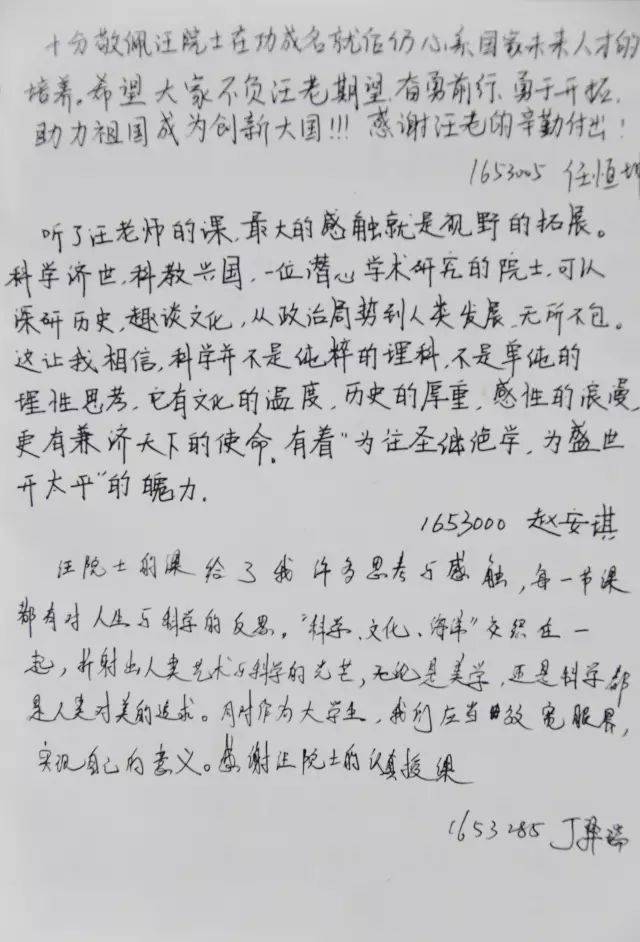 十分敬佩汪院士在功成名就后仍心系国家未来人才的
培养。希望大家不负汪老期望,奋勇前行,勇于开拓,
助力祖国成为创新大国!!! 感谢汪老的辛勤付出!
1653005 任恒
听了汪老师的课,最大的感触就是视野的拓展。
科学济世,科教兴国,一位潜心学术研究的院士,可以
深研历史,趣谈文化,从政治局势到人类发展,无所不包。
这让我相信,科学并不是纯粹的理科,不是单纯的
理性思考,它有文化的温度,历史的厚重,感性的浪漫,
更有兼济天下的使命。有着“为往圣继绝学,为盛世
开太平”的魄力.
1653000 赵安琪
汪院士的课给了我许多思考与感触,每一节课
都有对人生与科学的反思。“科学、文化、海洋”交织在一
起,折射出人类艺术与科学的光芒,无论是美学,还是科学都
是人类对美的追求。同时作为大学生,我们应当放宽眼界,
实现自己的意义。感谢汪院士的认真授课
1653285 丁